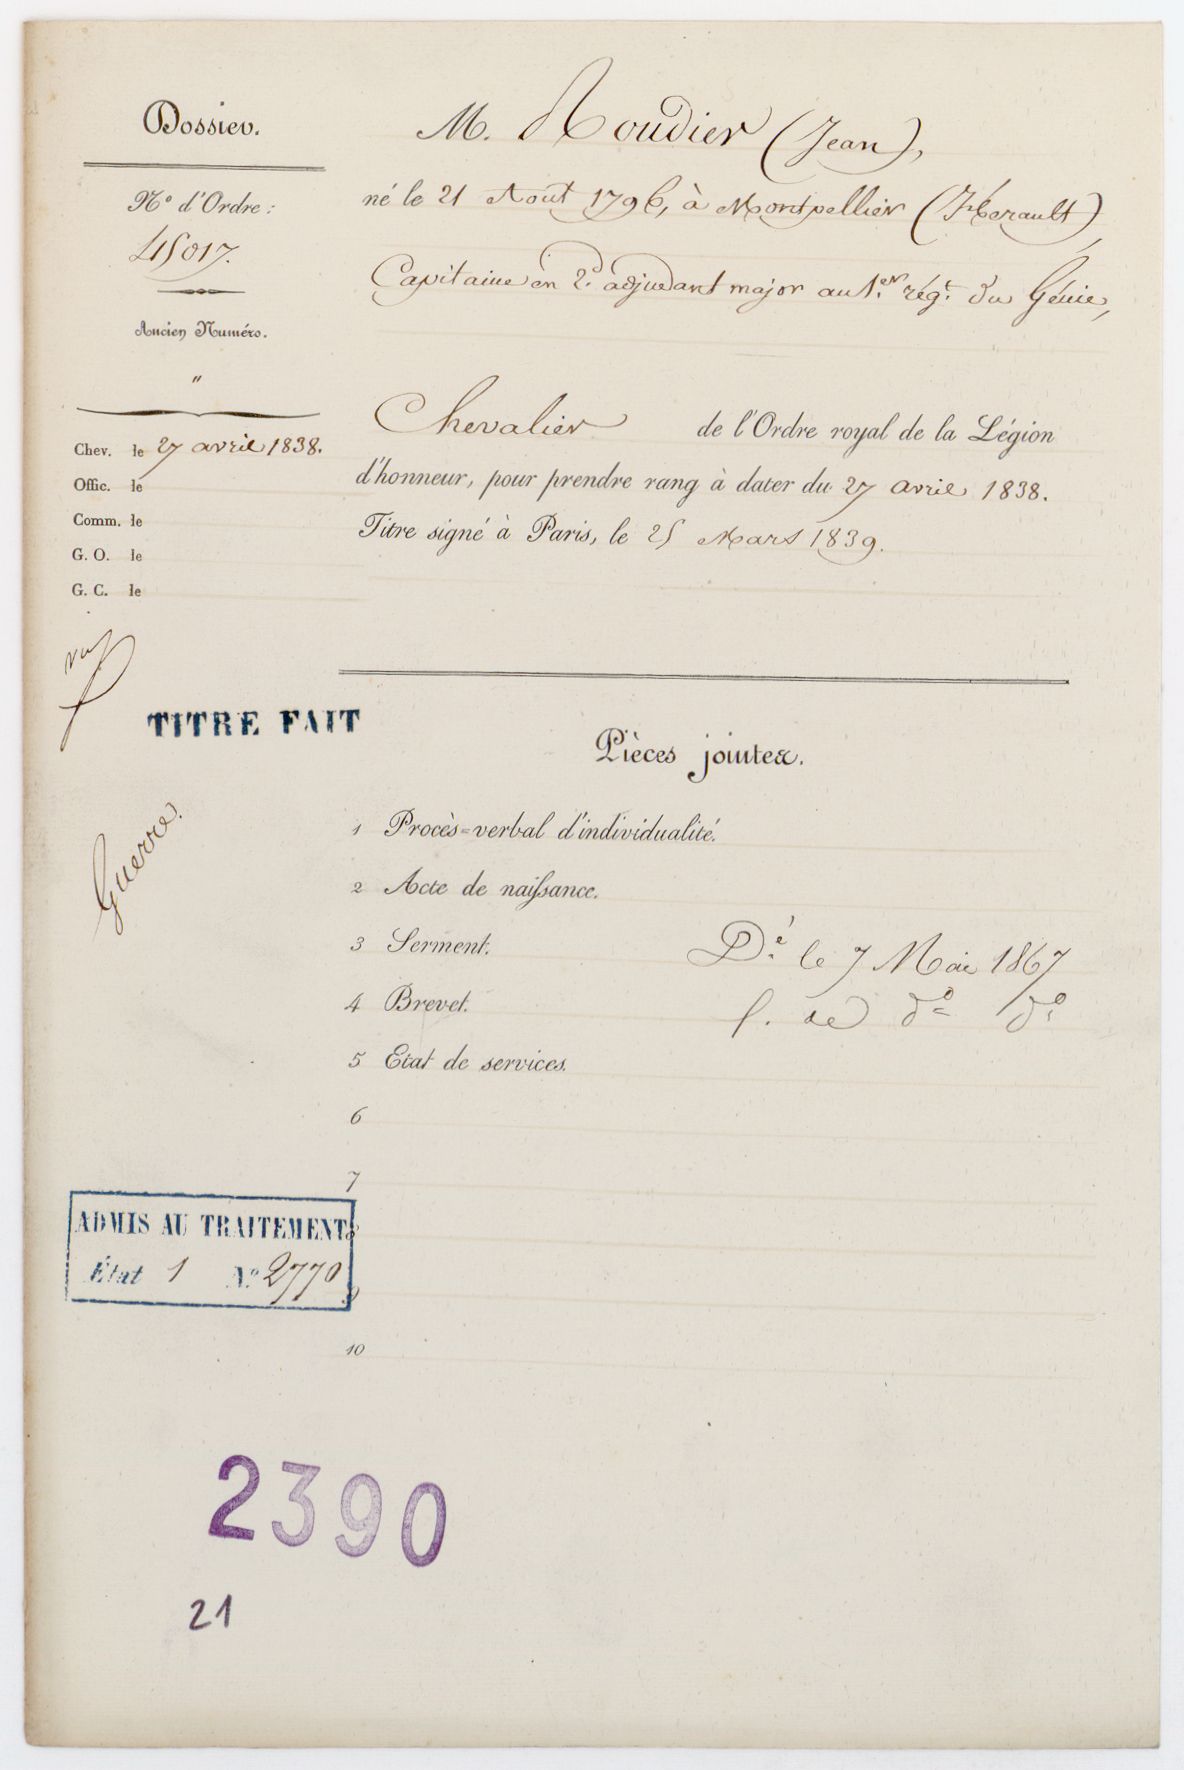 Dossier.
N° d'Ordre :
45017.
Ancien Numéro.
"
Chev. le 27 avril 1838.
Offic. le
Comm. le
G. O. le
G. C. le
M. Roudier (Jean),
né le 21 Août 1796, à Montpellier (Hérault),
Capitaine en 2d. adjudant major au 1.er rég.t du Génie,
Chevalier de l'Ordre royal de la Légion
d'honneur, pour prendre rang à dater du 27 avril 1838.
Titre signé à Paris, le 25 Mars 1839.
TITRE FAIT
Guerre.
Pièces jointes.
1 Procès=verbal d'individualité.
2 Acte de naissance.
3 Serment.
4 Brevet.
5 Etat de services.
6
7
8
9
10
Dé. le 7 Mai 1867
l. de do do
ADMIS AU TRAITEMENT
État 1 N° 2770
2390
21